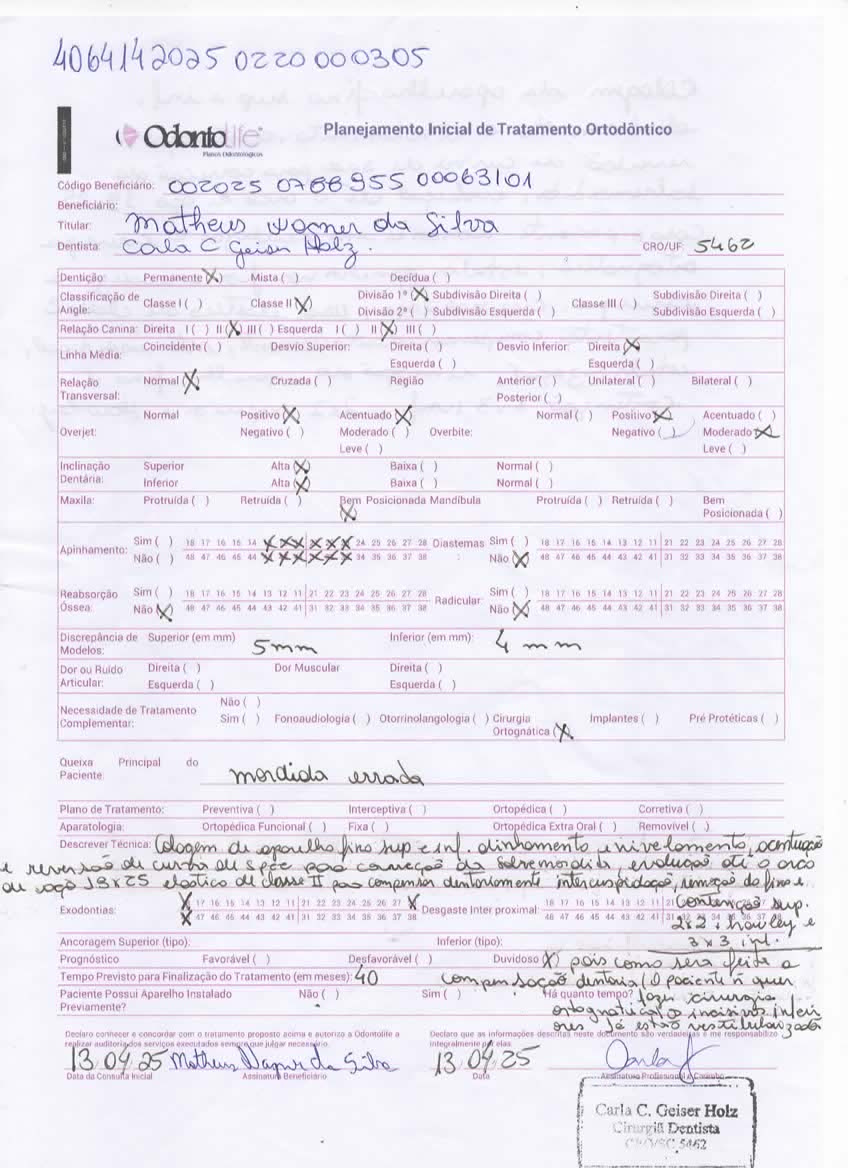 40641420250220000305
Odontolife
Planos Odontológicos
Planejamento Inicial de Tratamento Ortodôntico
Código Beneficiário: 002025 0788955 00063101
Beneficiário:
Titular: Matheus Wagner da Silva
Dentista: Carla C Geiser Holz. CRO/UF: 5462
Dentição: Permanente (X) Mista ( ) Decídua ( )
Classificação de Angle: Classe I ( ) Classe II (X) Divisão 1ª (X) Subdivisão Direita ( ) Classe III ( ) Subdivisão Direita ( )
Divisão 2ª ( ) Subdivisão Esquerda ( ) Subdivisão Esquerda ( )
Relação Canina: Direita I ( ) II (X) III ( ) Esquerda I ( ) II (X) III ( )
Linha Média: Coincidente ( ) Desvio Superior: Direita ( ) Desvio Inferior: Direita (X)
Esquerda ( ) Esquerda ( )
Relação Transversal: Normal (X) Cruzada ( ) Região Anterior ( ) Unilateral ( ) Bilateral ( )
Posterior ( )
Overjet: Normal Positivo (X) Acentuado (X) Normal ( ) Positivo (X) Acentuado ( )
Negativo ( ) Moderado ( ) Overbite: Negativo ( ) Moderado (X)
Leve ( ) Leve ( )
Inclinação Dentária: Superior Alta (X) Baixa ( ) Normal ( )
Inferior Alta (X) Baixa ( ) Normal ( )
Maxila: Protruída ( ) Retruída ( ) Bem Posicionada (X) Mandíbula Protruída ( ) Retruída ( ) Bem Posicionada ( )
Apinhamento: Sim ( ) 18 17 16 15 14 X X X X X X X X 24 25 26 27 28 Diastemas Sim ( ) 18 17 16 15 14 13 12 11 21 22 23 24 25 26 27 28
Não ( ) 48 47 46 45 44 X X X X X X 34 35 36 37 38 : Não (X) 48 47 46 45 44 43 42 41 31 32 33 34 35 36 37 38
Reabsorção Óssea: Sim ( ) 18 17 16 15 14 13 12 11 21 22 23 24 25 26 27 28 Radicular: Sim ( ) 18 17 16 15 14 13 12 11 21 22 23 24 25 26 27 28
Não (X) 48 47 46 45 44 43 42 41 31 32 33 34 35 36 37 38 Não (X) 48 47 46 45 44 43 42 41 31 32 33 34 35 36 37 38
Discrepância de Modelos: Superior (em mm) 5mm Inferior (em mm): 4 mm
Dor ou Ruído Articular: Direita ( ) Dor Muscular Direita ( )
Esquerda ( ) Esquerda ( )
Necessidade de Tratamento Complementar: Não ( )
Sim ( ) Fonoaudiologia ( ) Otorrinolangologia ( ) Cirurgia Ortognática (X) Implantes ( ) Pré Protéticas ( )
Queixa Principal do Paciente: mordida errada
Plano de Tratamento: Preventiva ( ) Interceptiva ( ) Ortopédica ( ) Corretiva ( )
Aparatologia: Ortopédica Funcional ( ) Fixa ( ) Ortopédica Extra Oral ( ) Removível ( )
Descrever Técnica: Colagem de aparelho fixo sup e inf. alinhamento e nivelamento, acentuação
e reversão de curva de Spee para correção da sobremordida, evolução até o arco
de aço 19x25 elástico de classe II para compensar dentariamente intercuspidação, remoção do fixo e
contenção sup.
2x2 + hawley e
3x3 inf.
Exodontias: X 17 16 15 14 13 12 11 21 22 23 24 25 26 27 X Desgaste Inter proximal: 18 17 16 15 14 13 12 11 21 22 23 24 25 26 27 28
X 47 46 45 44 43 42 41 31 32 33 34 35 36 37 38
Ancoragem Superior (tipo): Inferior (tipo):
Prognóstico Favorável ( ) Desfavorável ( ) Duvidoso (X) pois como sera feita a
compensação dentaria (O paciente ñ quer
fazer cirurgia
ortognatica) os incisivos inferi
ores já estão vestibularizados
Tempo Previsto para Finalização do Tratamento (em meses): 40
Paciente Possui Aparelho Instalado Previamente? Não ( ) Sim ( ) Há quanto tempo?
Declaro conhecer e concordar com o tratamento proposto acima e autorizo a Odontolife a realizar auditoria dos serviços executados sempre que julgar necessário.
Declaro que as informações descritas neste documento são verdadeiras e me responsabilizo integralmente por elas.
13 04 25 Matheus Wagner da Silva 13 04 25 Carla
Data da Consulta Inicial Assinatura Beneficiário Data Assinatura Profissional e Carimbo
Carla C. Geiser Holz
Cirurgiã Dentista
CRO/SC 5462